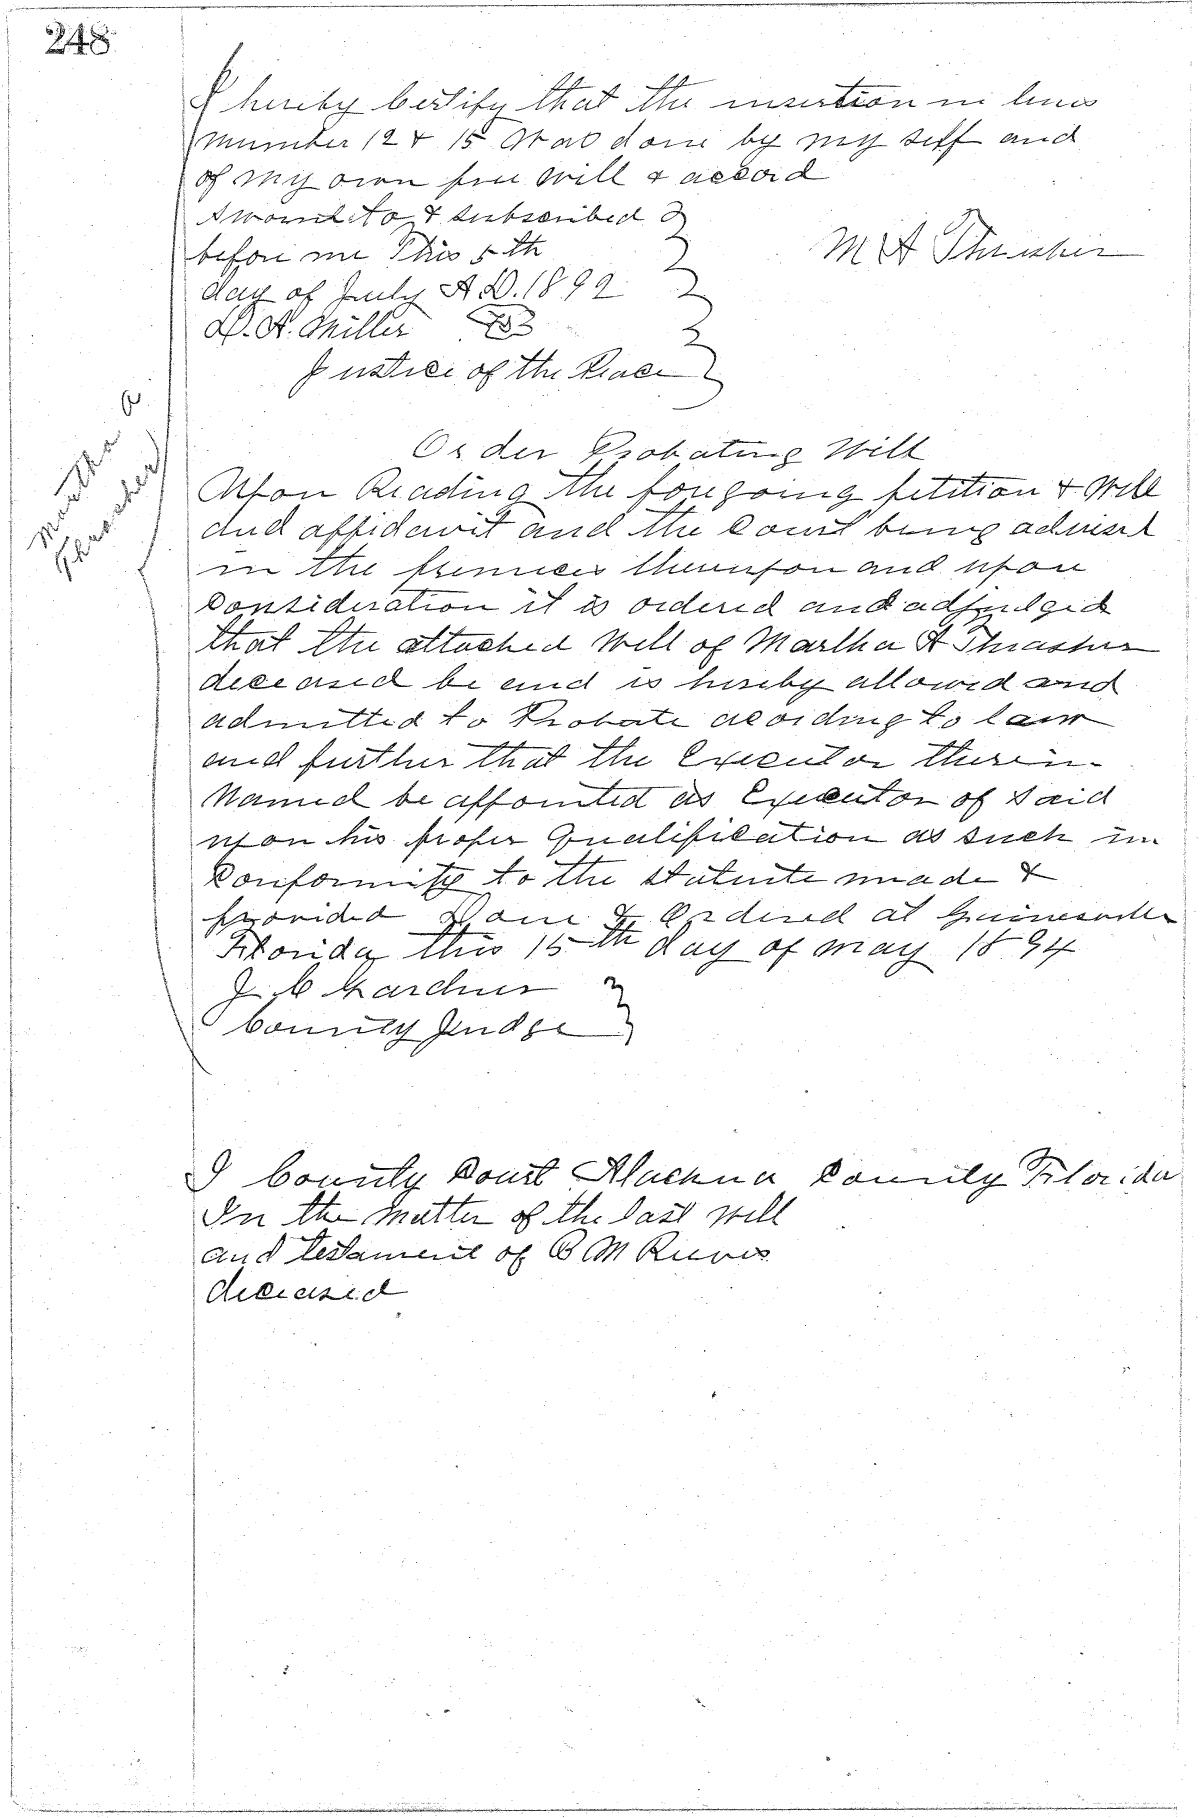 248
I hereby Certify that the insertion in lines
Number 12 & 15 Was done by my self and
of my own free will & accord
Sworn to & subscribed
before me This 5th
M A Thrasher
day of July A.D. 1892
A. Miller
Justice of the Peace
Martha A
Thrasher
Order Probating Will
Upon Reading the foregoing petition & Will
and affidavit and the Court being advised
in the premices thereupon and upon
Consideration it is ordered and adjudged
that the attached Will of Martha A Thrasher
deceased be and is hereby allowed and
admitted to Probate acording to law
and further that the Executor therein
Named be appointed as Executor of said
upon his proper Qualification as such in
Conformity to the statute made &
provided Done & Ordered at Gainesville
Florida this 15th day of may 1894
J. C Gardner
County Judge
I County Court Alachua County Florida
In the Matter of the last will
and testament of B M Reeves
deceased